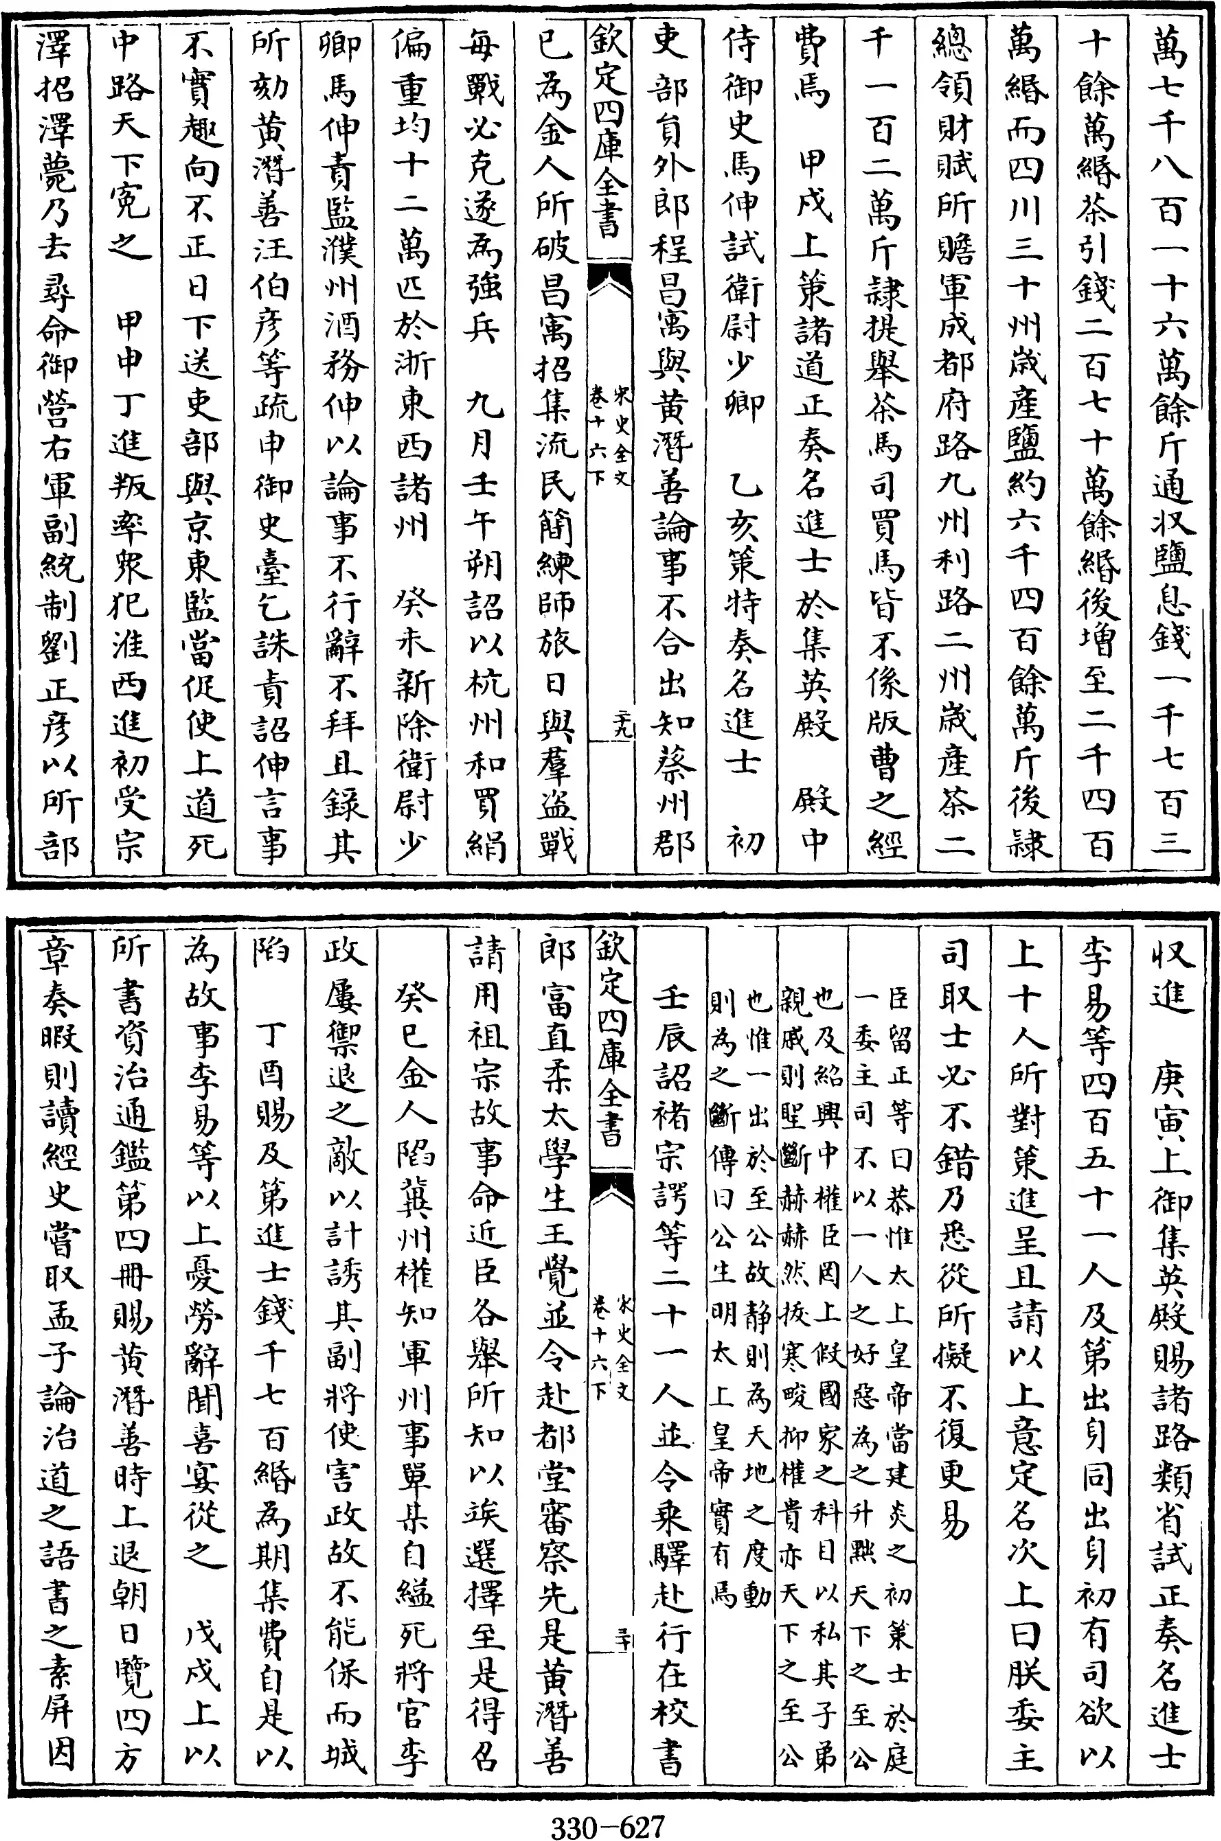 萬七千八百一十六萬餘斤通収鹽息錢一千七百三
十餘萬緡茶引錢二百七十萬餘緡後增至二千四百
萬緡而四川三十州歲產鹽約六千四百餘萬斤後隷
總領財賦所贍軍成都府路九州利路二州歲產茶二
千一百二萬斤隷提舉茶馬司買馬皆不係版曹之經
費焉　甲戌上策諸道正奏名進士於集英殿　殿中
侍御史馬伸試衛尉少卿　乙亥策特奏名進士　初
吏部員外郎程昌㝢與黄潛善論事不合出知蔡州郡
欽定四庫全書　宋史全文卷十六下　二十九
已為金人所破昌㝢招集流民簡練師旅日與羣盗戰
每戰必克遂為強兵　九月壬午朔詔以杭州和買絹
偏重均十二萬匹於浙東西諸州　癸未新除衛尉少
卿馬伸責監濮州酒務伸以論事不行辭不拜且錄其
所劾黄潛善汪伯彦等疏申御史臺乞誅責詔伸言事
不實趣向不正日下送吏部與京東監當促使上道死
中路天下寃之　甲申丁進叛率衆犯淮西進初受宗
澤招澤薨乃去尋命御營右軍副統制劉正彦以所部
収進　庚寅上御集英殿賜諸路類省試正奏名進士
李易等四百五十一人及第出身同出身初有司欲以
上十人所對策進呈且請以上意定名次上曰朕委主
司取士必不錯乃悉從所擬不復更易
臣留正等曰恭惟太上皇帝當建炎之初策士於庭
一委主司不以一人之好惡為之升黜天下之至公
也及紹興中權臣罔上假國家之科目以私其子弟
親戚則聖斷赫赫然拔寒畯抑權貴亦天下之至公
也惟一出於至公故靜則為天地之度動
則為之斷傳曰公生明太上皇帝實有焉
壬辰詔褚宗諤等二十一人並令乘驛赴行在校書
欽定四庫全書　宋史全文卷十六下　三十
郎富直柔太學生王覺並令赴都堂審察先是黄潛善
請用祖宗故事命近臣各舉所知以竢選擇至是得召
癸巳金人陷冀州權知軍州事單某自縊死將官李
政屢禦退之敵以計誘其副將使害政故不能保而城
陷　丁酉賜及第進士錢千七百緡為期集費自是以
為故事李易等以上憂勞辭聞喜宴從之　戊戌上以
所書資治通鑑第四冊賜黄潛善時上退朝日覽四方
章奏暇則讀經史嘗取孟子論治道之語書之素屏因
330-627